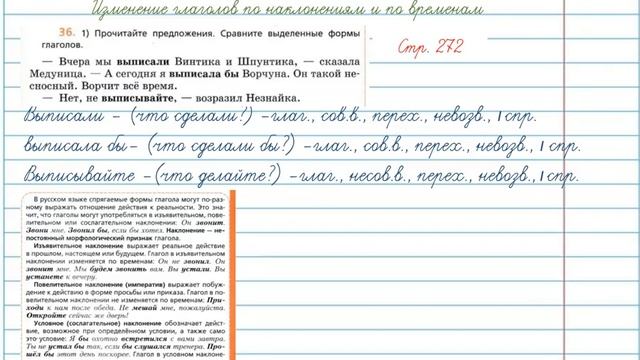 Изменение глаголов по наклонениям и по временам
36. 1) Прочитайте предложения. Сравните выделенные формы
глаголов.
Стр. 272
— Вчера мы выписали Винтика и Шпунтика, — сказала
Медуница. — А сегодня я выписала бы Ворчуна. Он такой не-
сносный. Ворчит всё время.
— Нет, не выписывайте, — возразил Незнайка.
Выписали – (что сделали?) –глаг., сов.в., перех., невозв., I спр.
выписала бы– (что сделали бы?) –глаг., сов.в., перех., невозв., I спр.
Выписывайте –(что делайте?) –глаг., несов.в., перех., невозв., I спр.
В русском языке спрягаемые формы глагола могут по-раз-
ному выражать отношение действия к реальности. Это зна-
чит, что глаголы могут употребляться в изъявительном, пове-
лительном или сослагательном наклонении: Он звонит.
Звони мне. Звонил бы, если бы хотел. Наклонение — не-
постоянный морфологический признак глагола.
Изъявительное наклонение выражает реальное действие
в прошлом, настоящем или будущем. Глагол в изъявительном
наклонении изменяется по временам: Он не звонил. Он
звонит мне. Мы будем звонить вам. Вы устали. Вы
устанете к вечеру.
Повелительное наклонение (императив) выражает побуж-
дение к действию в форме просьбы или приказа. Глагол в по-
велительном наклонении не изменяется по временам: При-
ходи к нам после обеда. Не мешай мне, пожалуйста.
Откройте сейчас же дверь!
Условное (сослагательное) наклонение обозначает действ-
ие, возможное при определённом условии, а также само
это условие: Я бы охотно встретился с вами завтра.
Ты не устал бы так, если бы слушался тренера. Про-
шёл бы этот день поскорее. Глагол в условном наклоне-